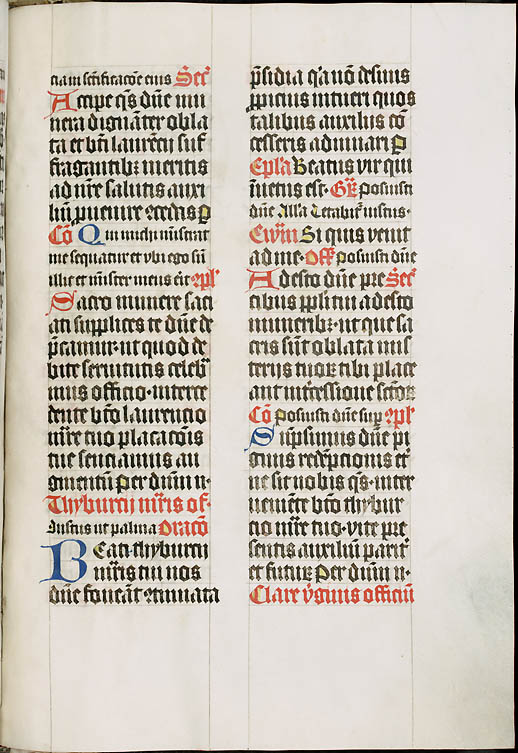 ciam sc̄ificacōe eius Sec̄
Accipe q̄s dn̄e mu
nera dignāter obla
ta et bt̄i laurēcij suf
fragantib; meritis
ad nr̄e salutis auxi
liū ꝓuenire ꝯcedas P
Cō Qui michi ministrat
me sequatur et vbi ego sū
illic et minister meus er̄it ꝯpl̄
Sacro munere saci
ati supplices te dn̄e de
p̄camur · ut quod de
bite seruitutis celeb̄
mus officio · interce
dente bt̄o laurencio
mr̄e tuo placacōis
tue senciamus au
gmentū Per dn̄m n̄·
Thyburcij mr̄is of·
Justus ut palma Oracō
Beati thyburcij
mr̄is tui nos
dn̄e foueāt ꝯtinuata
p̄sidia q̄a nō desinis
ꝓpicius intueri quos
talibus auxilijs cō
cesseris adiuuari P
Epl̄a Beatus vir qui
inuentus est · Gr̄ Posuisti
dn̄e Al̄la Letabit᷑ iustus ·
Ewm̄ Si quis venit
ad me · Off̄ Posuisti dn̄e
Adesto dn̄e pre Sec̄
cibus pp̄liꝰ tui adesto
muneribꝫ · ut que sa
cris sūt oblata mis
terijs tuoꝝ tibi place
ant int̄cessione sc̄toꝝ
Cō Posuisti dn̄e sup̄ ꝯpl̄
Sūpsimus dn̄e pi
gnus redēpcionis et̄
ne sit nobis q̄s · inter
ueniēte bt̄o thybur
cio mr̄e tuo · vite pre
sentis auxiliū parit̄
et futur̄ Per dn̄m n̄·
Clare v̄ginis officiū